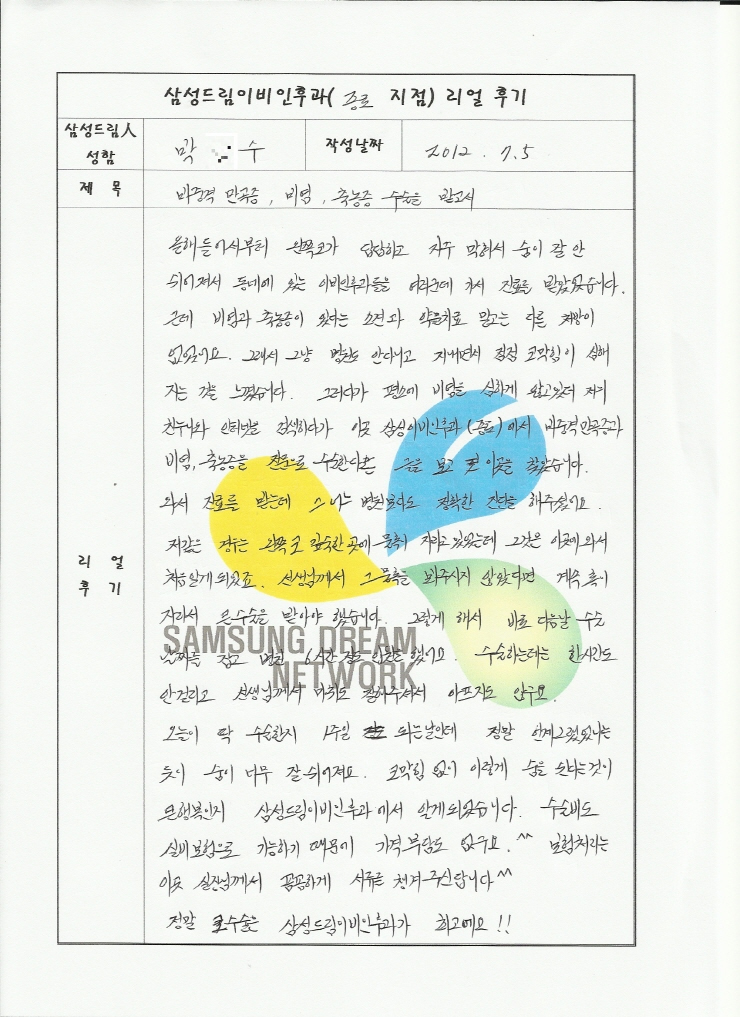 삼성드림이비인후과( 종로 지점) 리얼 후기
삼성드림人 성함
막 수
작성날짜
2012 . 7.5
제 목
비중격 만곡증 , 비염 , 축농증 수술을 받고서
리 얼 후 기
올해들어서부터 왼쪽코가 답답하고 자주 막혀서 숨이 잘 안
쉬어져서 동네에 있는 이비인후과들을 여러군데 가서 진료를 받았었습니다.
근데 비염과 축농증이 있다는 소견과 약물치료 말고는 다른 처방이
없었어요. 그래서 그냥 병원도 안다니고 지내면서 점점 코막힘이 심해
지는 것을 느꼈습니다. 그러다가 평소에 비염을 심하게 앓고있던 제가
친누나와 인터넷을 검색하다가 이곳 삼성이비인후과(종로)에서 비중격만곡증과
비염, 축농증을 전문으로 수술한다는 글을 보고 이곳을 찾았습니다.
와서 진료를 받는데 어느 병원보다도 정확한 진단을 해주셨어요.
저같은 경우는 왼쪽코 깊숙한 곳에 물혹이 자라고 있었는데 그것은 이곳에 와서
처음알게 되었죠. 선생님께서 그 물혹을 봐주시지 않았다면 계속 혹이
자라서 큰수술을 받아야 했습니다. 그렇게 해서 바로 다음날 수술
날짜를 잡고 병원 6시간정도 입원을 했어요. 수술하는데는 한시간도
안걸리고 선생님께서 마취도 잘해주셔서 아프지도 않구요.
SAMSUNG DREAM
NETWORK
오늘이 딱 수술한지 1주일 되는날인데 정말 언제그랬었냐는
듯이 숨이 너무 잘쉬어져요. 코막힘 없이 이렇게 숨을 쉰다는것이
큰행복인지 삼성드림이비인후과에서 알게되었습니다. 수술비도
실비보험으로 가능하기 때문에 가격부담도 없구요.^^ 보험처리는
이곳 실장님께서 꼼꼼하게 서류를 챙겨주신답니다^^
정말 코수술은 삼성드림이비인후과가 최고에요!!